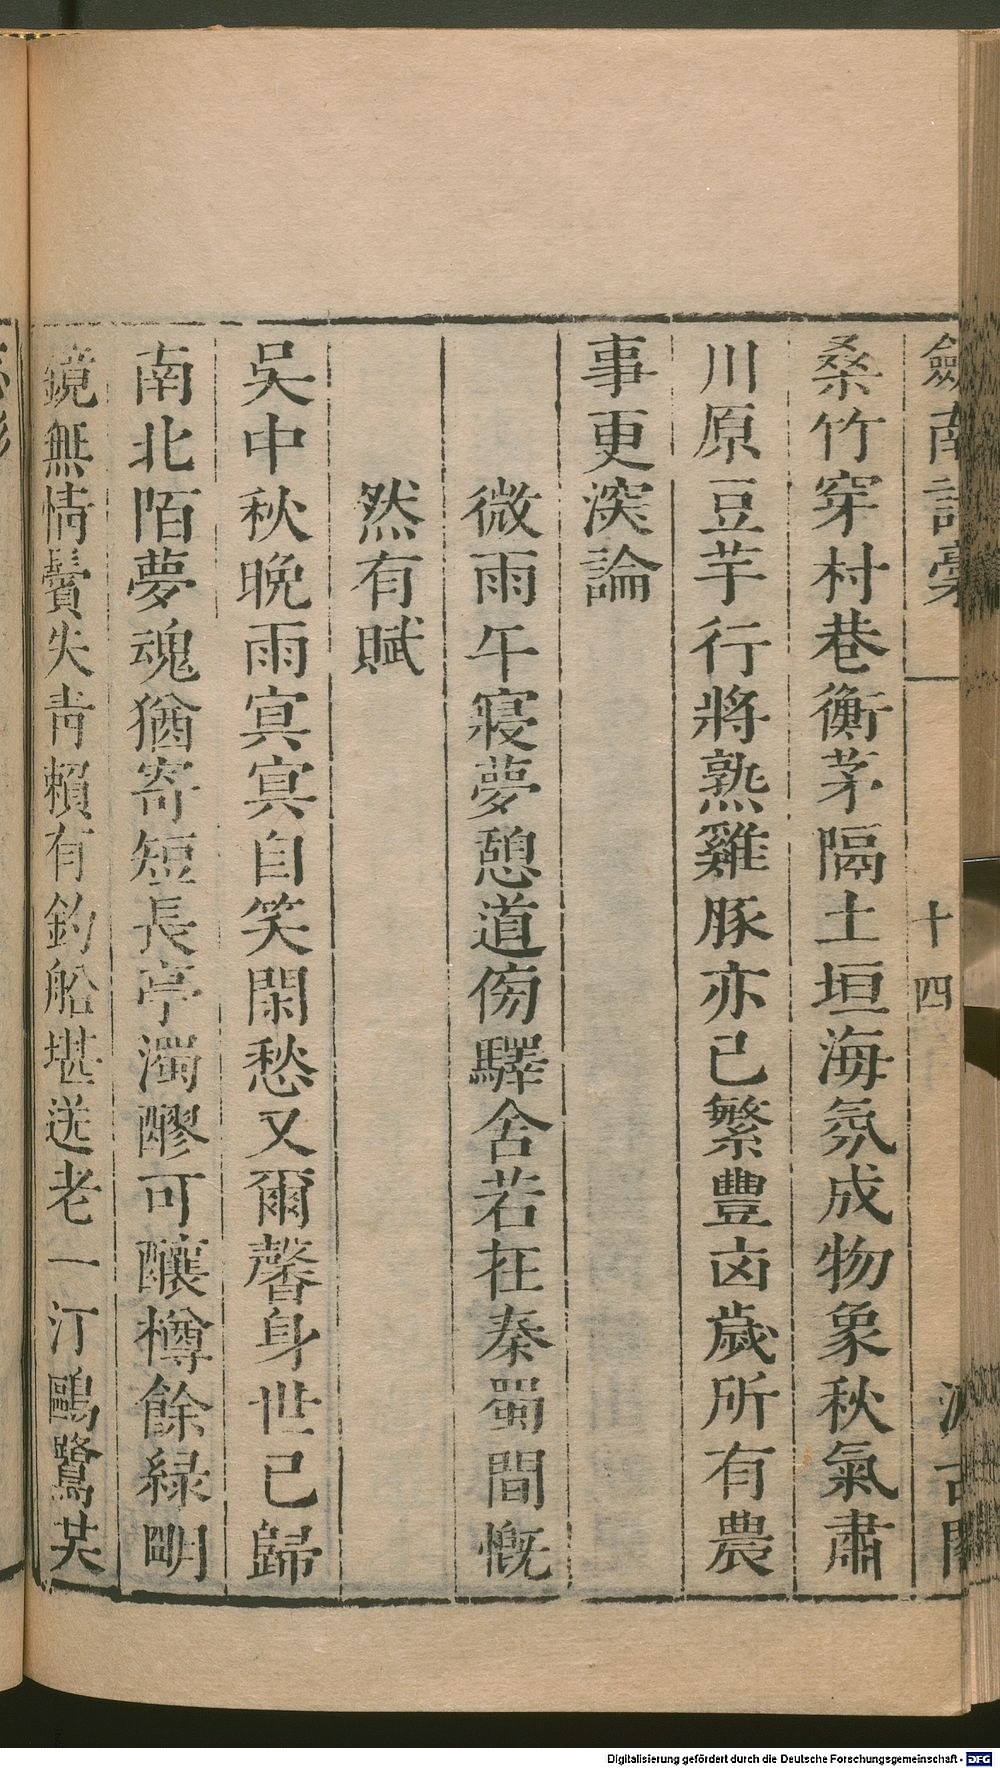 劍南詩稾
十四
汲古閣
桑竹穿村巷衡茅隔土垣海氛成物象秋氣肅
川原豆芋行將熟雞豚亦已繁豐凶歲所有農
事更深論
微雨午寢夢憩道傍驛舍若在秦蜀間慨
然有賦
吳中秋晚雨㝠㝠自笑閑愁又爾馨身世已歸
南北陌夢魂猶寄短長亭濁醪可釀樽餘綠明
鏡無情鬢失青賴有釣船堪送老一汀鷗鷺共
Digitalisierung gefördert durch die Deutsche Forschungsgemeinschaft - DFG